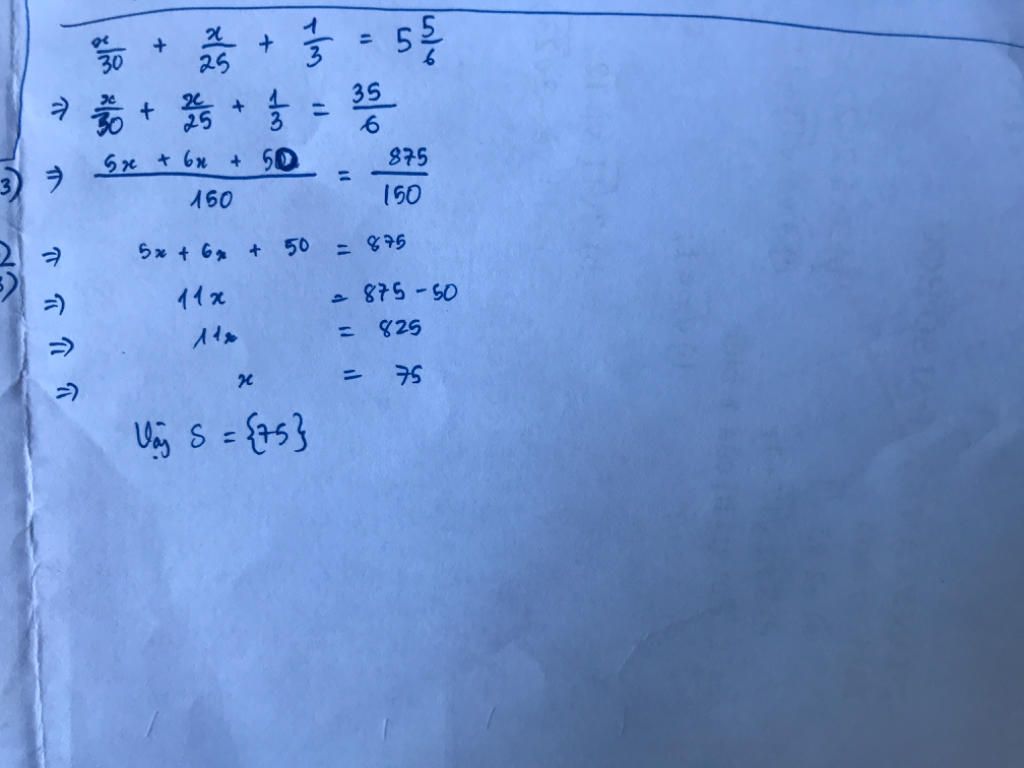 x/30 + x/25 + 1/3 = 5 5/6
⇒ x/30 + x/25 + 1/3 = 35/6
3) ⇒ (5x + 6x + 50)/150 = 875/150
2 ⇒ 5x + 6x + 50 = 875
⇒ 11x = 875 - 50
⇒ 11x = 825
⇒ x = 75
Vậy S = {75}